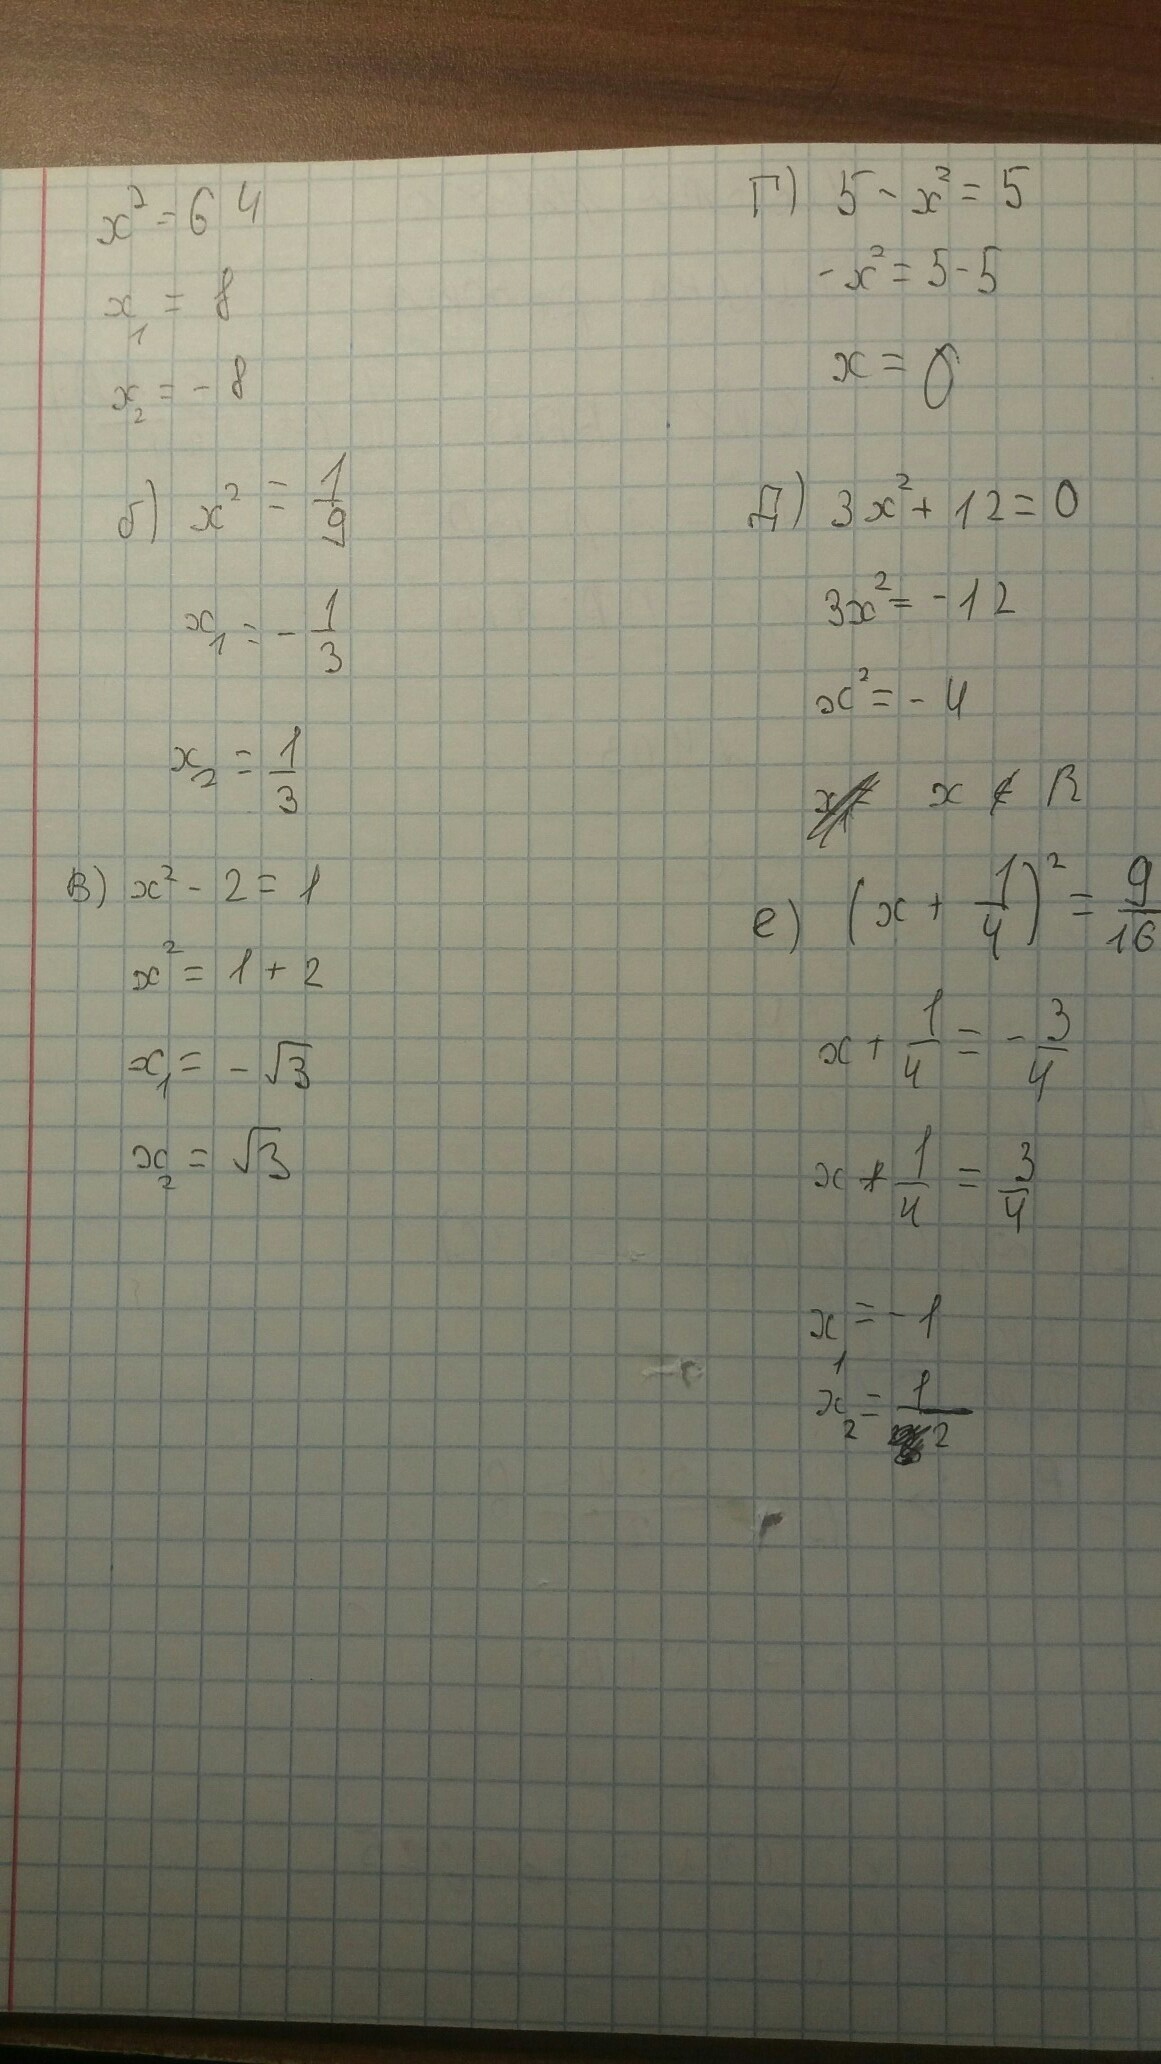 x² = 64
x₁ = 8
x₂ = - 8
б) x² = 1/9
x₁ = - 1/3
x₂ = 1/3
в) x² - 2 = 1
x² = 1 + 2
x₁ = - √3
x₂ = √3
г) 5 - x² = 5
- x² = 5 - 5
x = 0
д) 3x² + 12 = 0
3x² = - 12
x² = - 4
x ∉ R
е) (x + 1/4)² = 9/16
x + 1/4 = - 3/4
x + 1/4 = 3/4
x₁ = - 1
x₂ = 1/2